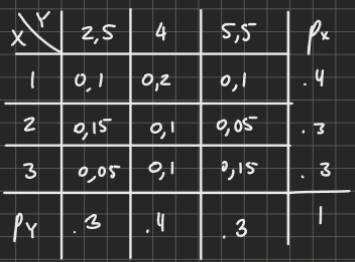 X Y 2,5 4 5,5 Px
1 0,1 0,2 0,1 .4
2 0,15 0,1 0,05 .3
3 0,05 0,1 0,15 .3
PY .3 .4 .3 1